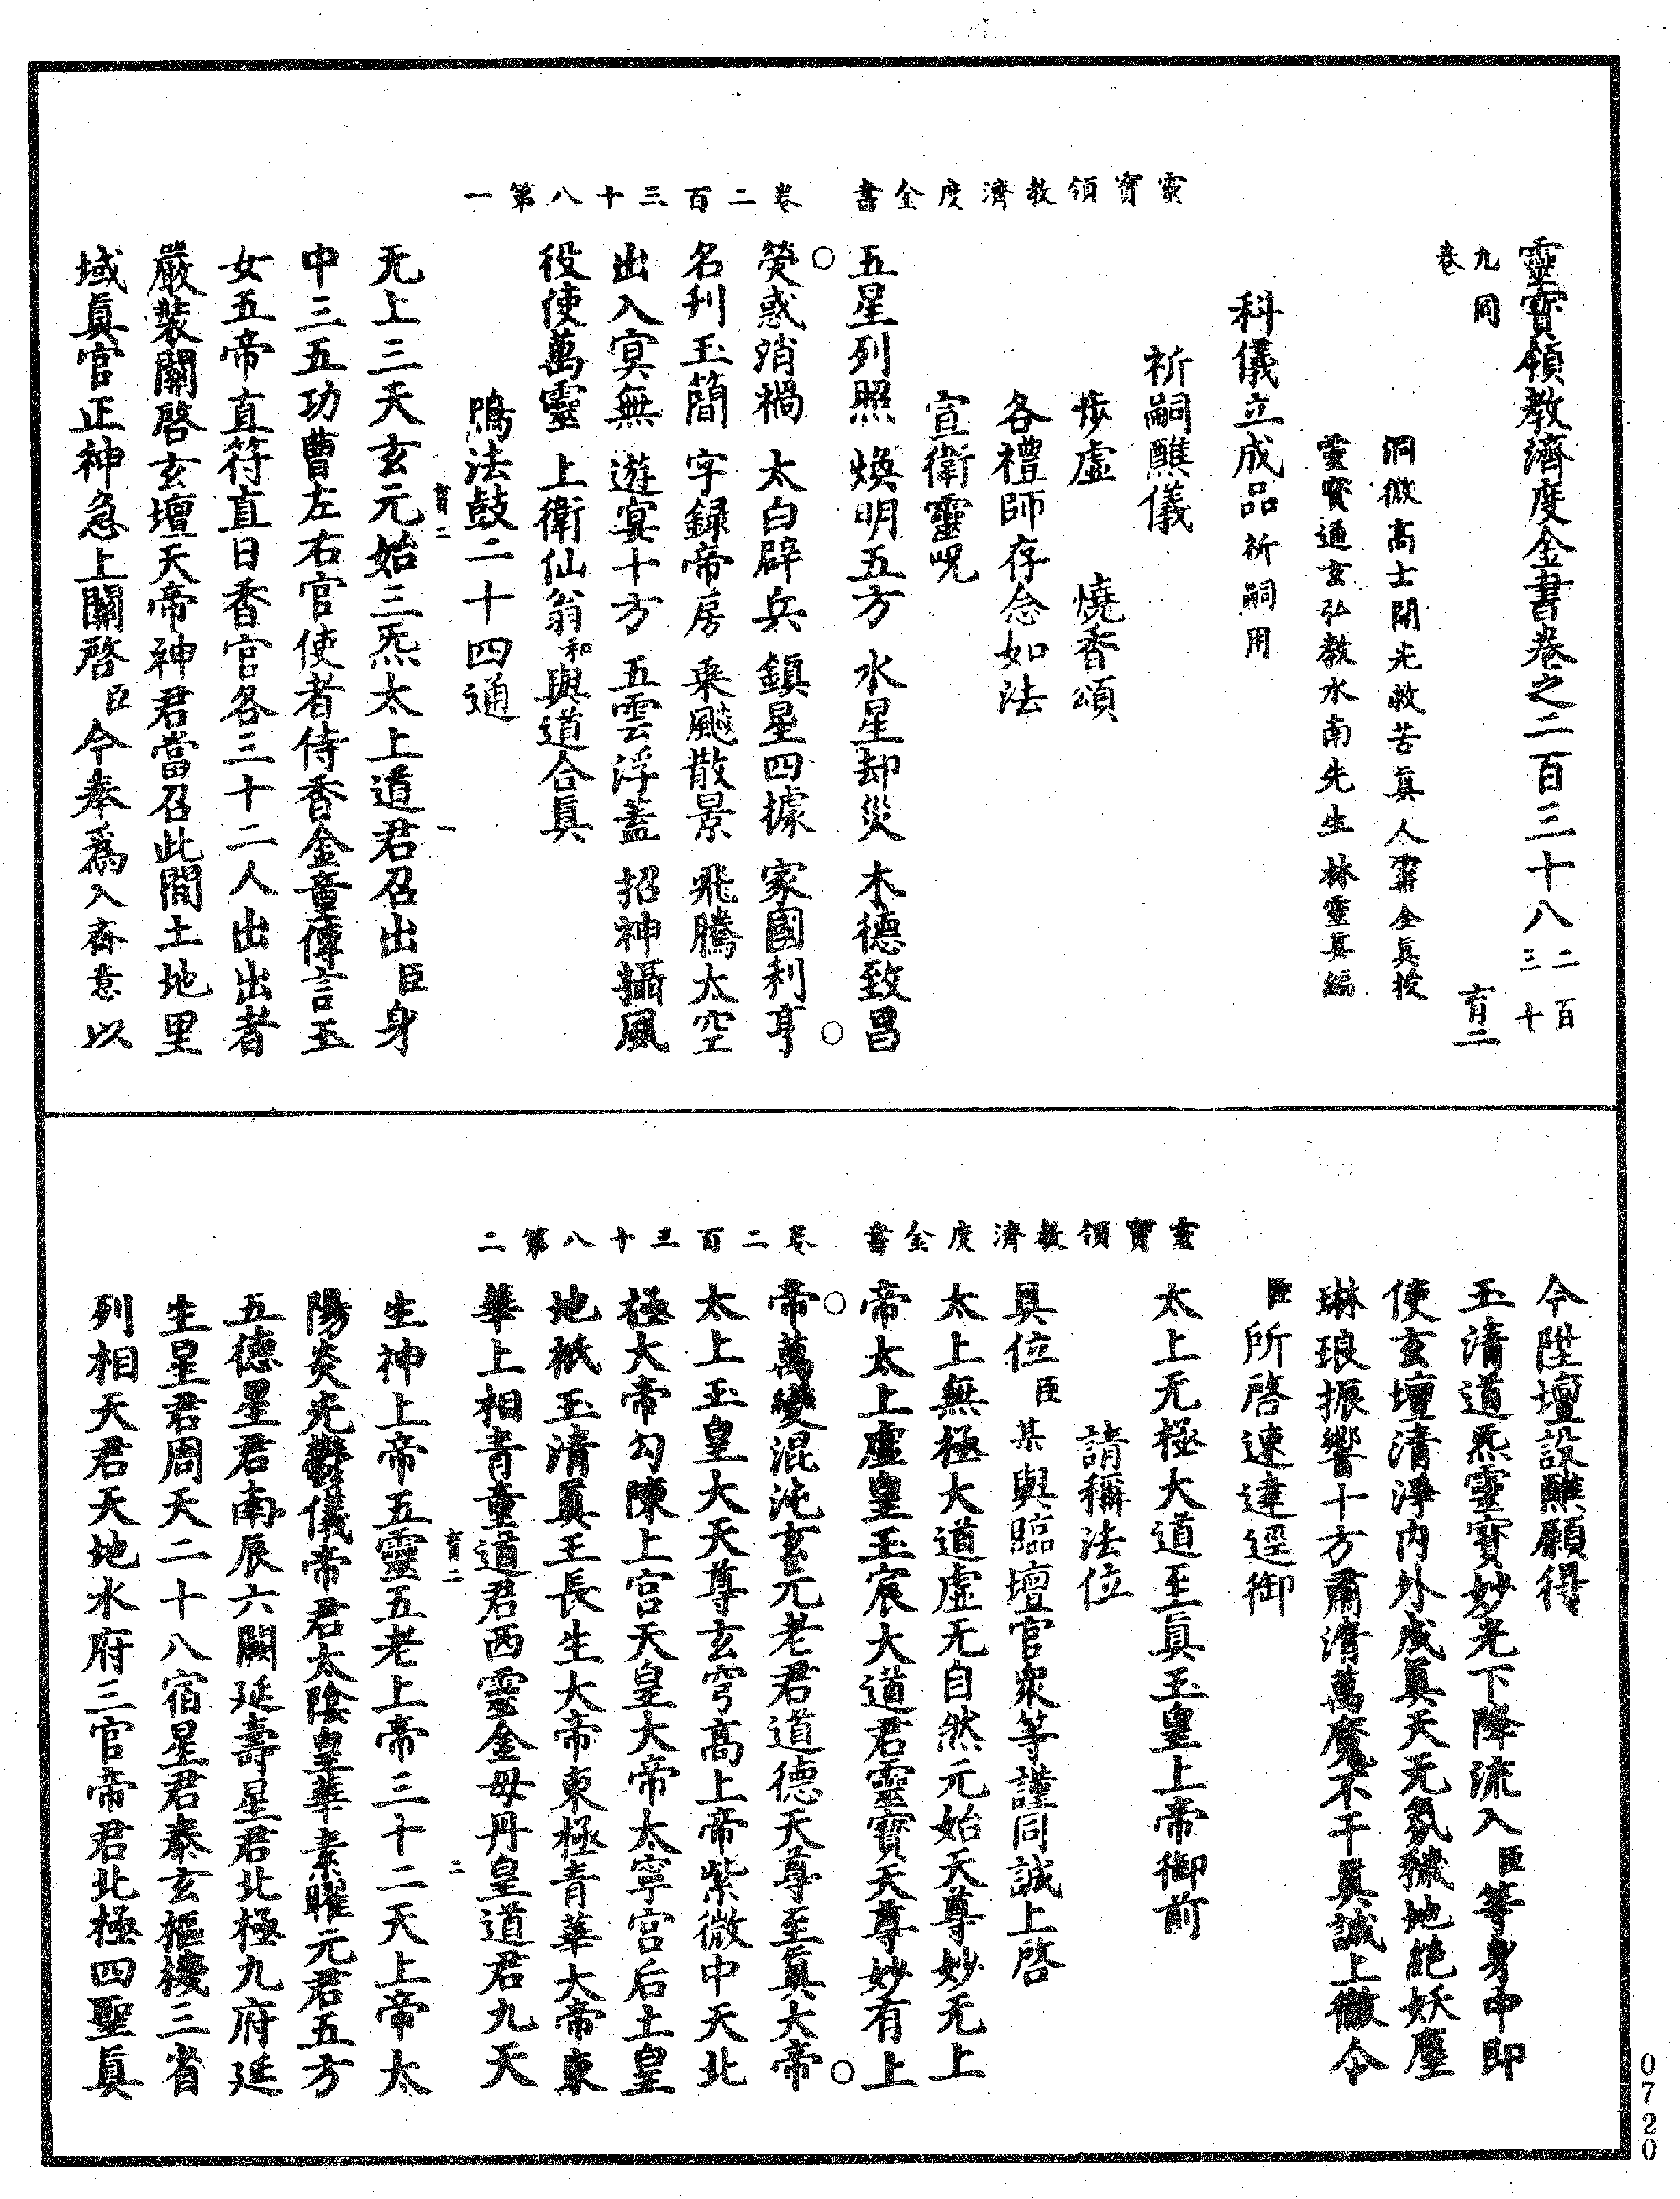 靈寶領教濟度金書卷之二百三十八 二百三十
九同卷 育二
洞微高士開光救苦眞人甯全眞授
靈寶通玄弘教水南先生林靈眞編
科儀立成品 祈嗣用
祈嗣醮儀
步虛 燒香頌
各禮師存念如法
宣衛靈呪
五星列照 煥明五方 水星却災 木德致昌
熒惑消禍 太白辟兵 鎮星四據 家國利亨
名刋玉簡 字録帝房 乘飈散景 飛騰太空
出入寞無 遊宴十方 五雲浮蓋 招神攝風
役使萬靈 上衛仙翁 和 與道合眞
鳴法鼓二十四通
无上三天玄元始三炁太上道君召出臣身
中三五功曹左右官使者侍香金童傳言玉
女五帝直符直日香官各三十二人出出者
嚴裝關啓玄壇天帝神君當召此間土地里
域眞官正神急上關啓臣今奉爲入齋意以
靈寶領教濟度金書 卷二百三十八第一
育二 一
今陞壇設醮願得
玉清道炁靈寶妙光下降流入臣等身中即
使玄壇清淨內外成眞天无氛穢地絶妖塵
琳琅振響十方肅清萬魔不干眞誠上徹令
臣所啓速達逕御
太上无極大道至眞玉皇上帝御前
請稱法位
具位臣某與臨壇官衆等謹同誠上啓
太上無極大道虛无自然元始天尊妙无上
帝太上虛皇玉宸大道君靈寶天尊妙有上
帝萬變混沌玄元老君道德天尊至眞大帝
太上玉皇大天尊玄穹高上帝紫微中天北
極大帝勾陳上宮天皇大帝太寧宮后土皇
地祇玉清眞王長生大帝東極青華大帝東
華上相青童道君西靈金母丹皇道君九天
生神上帝五靈五老上帝三十二天上帝太
陽炎光鬱儀帝君太陰皇華素曜元君五方
五德星君南辰六闕延壽星君北極九府延
生星君周天二十八宿星君泰玄樞機三省
列相天君天地水府三官帝君北極四聖眞
靈寶領教濟度金書 卷二百三十八第二
育二 二
0720